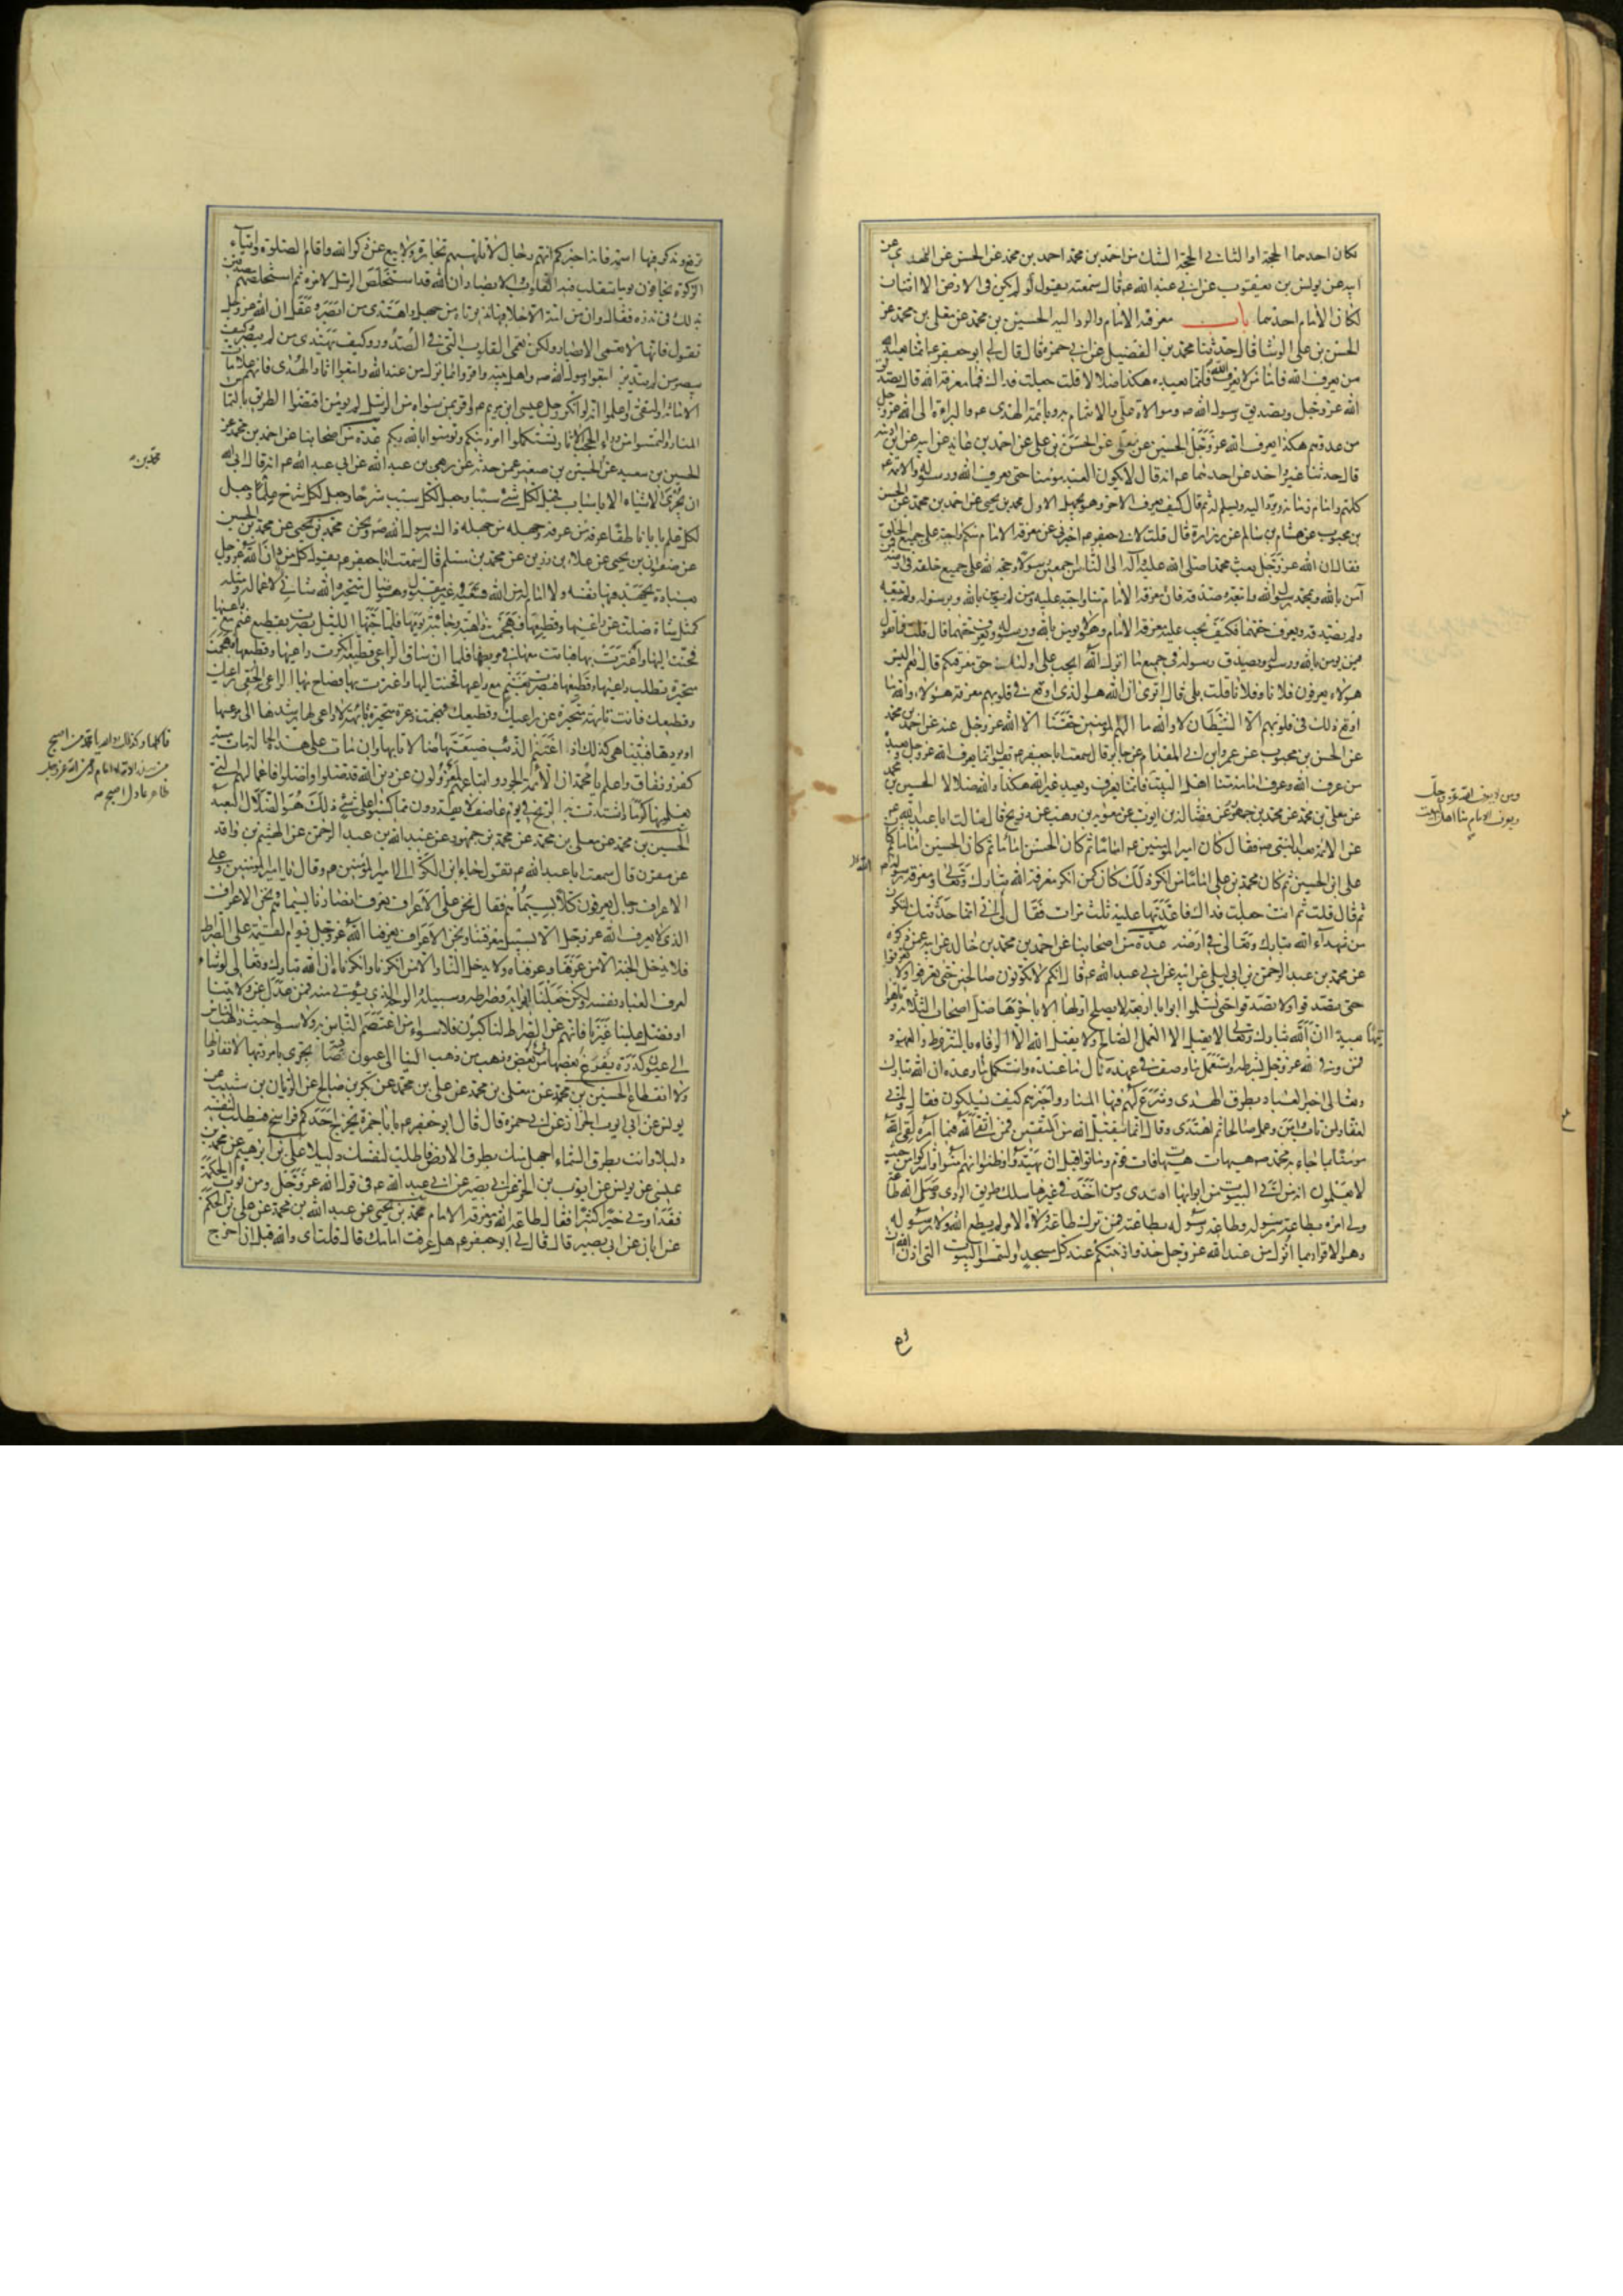 لكان احدهما الحجة او الثاني الحجة الشك من احمد بن محمد احمد بن محمد عن محمد بن الحسن عن النهدي عن
ابيه عن يونس بن يعقوب عن ابي عبد الله ع قال سمعته يقول لو لم يكن في الارض الا اثنان
لكان الامام احدهما باب معرفة الامام والرد اليه الحسين بن محمد عن معلى بن محمد عن
الحسن بن علي الوشا قال حدثنا محمد بن الفضيل عن ابي حمزة قال قال لي ابو جعفر ع انما يعبد الله
من يعرف الله فاما من لا يعرف الله فانما يعبده هكذا ضلالا قلت جعلت فداك فما معرفة الله قال تصديق
الله عز وجل وتصديق رسوله الله ص وموالاة علي والايتمام به وبائمة الهدى ع والبراءة الى الله عز وجل
من عدوهم هكذا يعرف الله عز وجل الحسين عن معلى عن الحسن بن علي عن احمد بن عائذ عن ابيه عن ابن اذينة
قال حدثنا غير واحد عن احدهما ع انه قال لا يكون العبد مؤمنا حتى يعرف الله ورسوله والائمة
كلهم وامام زمانه ويرد اليه ويسلم له ثم قال كيف يعرف الاخر وهو يجهل الاول محمد بن يحيى عن احمد بن محمد عن الحسن
بن محبوب عن هشام بن سالم عن زرارة قال قلت لابي جعفر ع اخبرني عن معرفة الامام منكم واجبة على جميع الخلق
فقال ان الله عز وجل بعث محمدا صلى الله عليه وآله الى الناس اجمعين رسولا وحجة لله على جميع خلقه في ارضه فمن
آمن بالله وبمحمد رسول الله واتبعه وصدقه فان معرفة الامام منا واجبة عليه ومن لم يؤمن بالله وبرسوله ولم يتبعه
ولم يصدقه ويعرف حقهما فكيف يجب عليه معرفة الامام وهو لا يؤمن بالله ورسوله ويعرف حقهما قال قلت فما تقول
فيمن يؤمن بالله ورسوله ويصدق رسوله في جميع ما انزل الله ايجب على اولئك حق معرفتكم قال نعم اليس
هؤلاء يعرفون فلانا وفلانا قلت بلى قال اترى ان الله هو الذي اوقع في قلوبهم معرفة هؤلاء والله ما
اوقع ذلك في قلوبهم الا الشيطان لا والله ما الهم المؤمنين حقنا الا الله عز وجل عنه عن احمد بن محمد
عن الحسن بن محبوب عن عمرو بن ابي المقدام عن جابر قال سمعت ابا جعفر ع يقول انما يعرف الله عز وجل ويعبده
من عرف الله وعرف امامه منا اهل البيت فانما يعرف ويعبد غير الله هكذا والله ضلالا الحسين بن محمد
عن معلى بن محمد عن محمد بن جمهور عن فضالة بن ايوب عن معوية بن وهب عن ذريح قال سالت ابا عبد الله ع
عن الائمة بعد النبي ص فقال كان امير المؤمنين ع اماما ثم كان الحسن اماما ثم كان الحسين اماما ثم كان
علي بن الحسين ثم كان محمد بن علي اماما من انكر ذلك كان كمن انكر معرفة الله تبارك وتعالى ومعرفة رسوله
ثم قال قلت ثم انت جعلت فداك فاعدتها عليه ثلث مرات فقال لي اني انما حدثتك لتكون
من شهداء الله تبارك وتعالى في ارضه عدة من اصحابنا عن احمد بن محمد بن خالد عن ابيه عمن ذكره
عن محمد بن عبد الرحمن بن ابي ليلى عن ابيه عن ابي عبد الله ع قال انكم لا تكونون صالحين حتى تعرفوا ولا تعرفوا
حتى تصدقوا ولا تصدقوا حتى تسلموا ابوابا اربعة لا يصلح اولها الا باخرها ضل اصحاب الثلاثة وتاهوا
تيها بعيدا ان الله تبارك وتعالى لا يقبل الا العمل الصالح ولا يقبل الله الا الوفاء بالشروط والعهود
فمن وفى لله عز وجل بشرطه واستعمل ما وصف في عهده نال ما عنده واستكمل ما وعده ان الله تبارك
وتعالى اخبر العباد بطرق الهدى وشرع لهم فيها المنار واخبرهم كيف يسلكون فقال واني
لغفار لمن تاب وآمن وعمل صالحا ثم اهتدى وقال انما يتقبل الله من المتقين فمن اتقى الله فيما امره لقي الله
مؤمنا بما جاء به محمد ص هيهات هيهات فات قوم وماتوا قبل ان يهتدوا وظنوا انهم آمنوا واشركوا من حيث
لا يعلمون انه من اتى البيوت من ابوابها اهتدى ومن اخذ في غيرها سلك طريق الردى وصل الله طاعة
ولي امره بطاعة رسوله وطاعة رسوله بطاعته فمن ترك طاعة ولاة الامر لم يطع الله ولا رسوله
وهو الاقرار بما انزل من عند الله عز وجل خذوا زينتكم عند كل مسجد والتمسوا البيوت التي اذن الله ان
ومن لا يعرف الله عز وجل
ويعرف الامام منا اهل البيت
ترفع ويذكر فيها اسمه فانه اخبركم انهم رجال لا تلهيهم تجارة ولا بيع عن ذكر الله واقام الصلوة وايتاء
الزكوة يخافون يوما تتقلب فيه القلوب والابصار ان الله قد استخلص الرسل لامره ثم استخلصهم مصدقين
بذلك في نذره فقال وان من امة الا خلا فيها نذير تاه من جهل واهتدى من ابصر وعقل ان الله عز وجل
يقول فانها لا تعمى الابصار ولكن تعمى القلوب التي في الصدور وكيف يهتدي من لم يبصر وكيف
يبصر من لم يتدبر اتبعوا رسول الله ص واهل بيته واقروا بما نزل من عند الله واتبعوا اثار الهدى فانهم علامات
الامانة والتقى واعلموا انه لو انكر رجل عيسى ابن مريم ع واقر بمن سواه من الرسل لم يؤمن اقتصوا الطريق بالتماس
المنار والتمسوا من وراء الحجب الاثار تستكملوا امر دينكم وتؤمنوا بالله ربكم عدة من اصحابنا عن احمد بن محمد عن
الحسين بن سعيد عن الحسين بن صغير عمن حدثه عن ربعي بن عبد الله عن ابي عبد الله ع انه قال ابى الله
ان يجري الاشياء الا باسباب فجعل لكل شيء سببا وجعل لكل سبب شرحا وجعل لكل شرح علما وجعل
لكل علم بابا ناطقا عرفه من عرفه وجهله من جهله ذاك رسول الله ص ونحن محمد بن يحيى عن محمد بن الحسين
عن صفوان بن يحيى عن علاء بن رزين عن محمد بن مسلم قال سمعت ابا جعفر ع يقول كل من دان الله عز وجل
بعبادة يجهد فيها نفسه ولا امام له من الله فسعيه غير مقبول وهو ضال متحير والله شانئ لاعماله ومثله
كمثل شاة ضلت عن راعيها وقطيعها فهجمت ذاهبة وجائية يومها فلما جنها الليل بصرت بقطيع غنم مع راعيها
فحنت اليها واغترت بها فباتت معها في مربضها فلما ان ساق الراعي قطيعه انكرت راعيها وقطيعها فهجمت
متحيرة تطلب راعيها وقطيعها فبصرت بغنم مع راعيها فحنت اليها واغترت بها فصاح بها الراعي الحقي براعيك
وقطيعك فانت تائهة متحيرة عن راعيك وقطيعك فهجمت ذعرة متحيرة تائهة لا راعي لها يرشدها الى مرعيها
او يردها فبينا هي كذلك اذا اغتنم الذئب ضيعتها فاكلها وان مات على هذه الحالة مات ميتة
كفر ونفاق واعلم يا محمد ان ائمة الجور واتباعهم لمعزولون عن دين الله قد ضلوا واضلوا فاعمالهم التي
يعملونها كرماد اشتدت به الريح في يوم عاصف لا يقدرون مما كسبوا على شيء ذلك هو الضلال البعيد
الحسين بن محمد عن معلى بن محمد عن محمد بن جمهور عن عبد الله بن عبد الرحمن عن الهيثم بن واقد
عن مقرن قال سمعت ابا عبد الله ع يقول جاء ابن الكوا الى امير المؤمنين ع وقال يا امير المؤمنين وعلى
الاعراف رجال يعرفون كلا بسيماهم فقال نحن على الاعراف نعرف انصارنا بسيماهم ونحن الاعراف
الذي لا يعرف الله عز وجل الا بسبيل معرفتنا ونحن الاعراف يعرفنا الله عز وجل يوم القيمة على الصراط
فلا يدخل الجنة الا من عرفنا وعرفناه ولا يدخل النار الا من انكرنا وانكرناه ان الله تبارك وتعالى لو شاء
لعرف العباد نفسه ولكن جعلنا ابوابه وصراطه وسبيله والوجه الذي يؤتى منه فمن عدل عن ولايتنا
او فضل علينا غيرنا فانهم عن الصراط لناكبون فلا سواء من اعتصم الناس به ولا سواء حيث ذهب الناس
الى عيون كدرة يفرغ بعضها من بعض وذهب من ذهب الينا الى عيون صافية تجري بامر ربها لا نفاد لها
ولا انقطاع الحسين بن محمد عن معلى بن محمد عن علي بن محمد عن بكر بن صالح عن الريان بن شبيب عن
يونس عن ابي ايوب الخزاز عن ابي حمزة قال قال ابو جعفر ع يا با حمزة يخرج احدكم فراسخ فيطلب لنفسه
دليلا وانت بطرق السماء اجهل منك بطرق الارض فاطلب لنفسك دليلا علي بن ابرهيم عن محمد بن
عيسى عن يونس عن ايوب بن الحر عن ابي بصير عن ابي عبد الله ع في قول الله عز وجل ومن يؤت الحكمة
فقد اوتي خيرا كثيرا فقال طاعة الله ومعرفة الامام محمد بن يحيى عن عبد الله بن محمد عن علي بن الحكم
عن ابان عن ابي بصير قال قال لي ابو جعفر ع هل عرفت امامك قال قلت اي والله قبل ان اخرج
محمد بن
فاكلها وكذلك والله يا محمد من اصبح
من هذه الامة لا امام له من الله عز وجل
ظاهر عادل اصبح